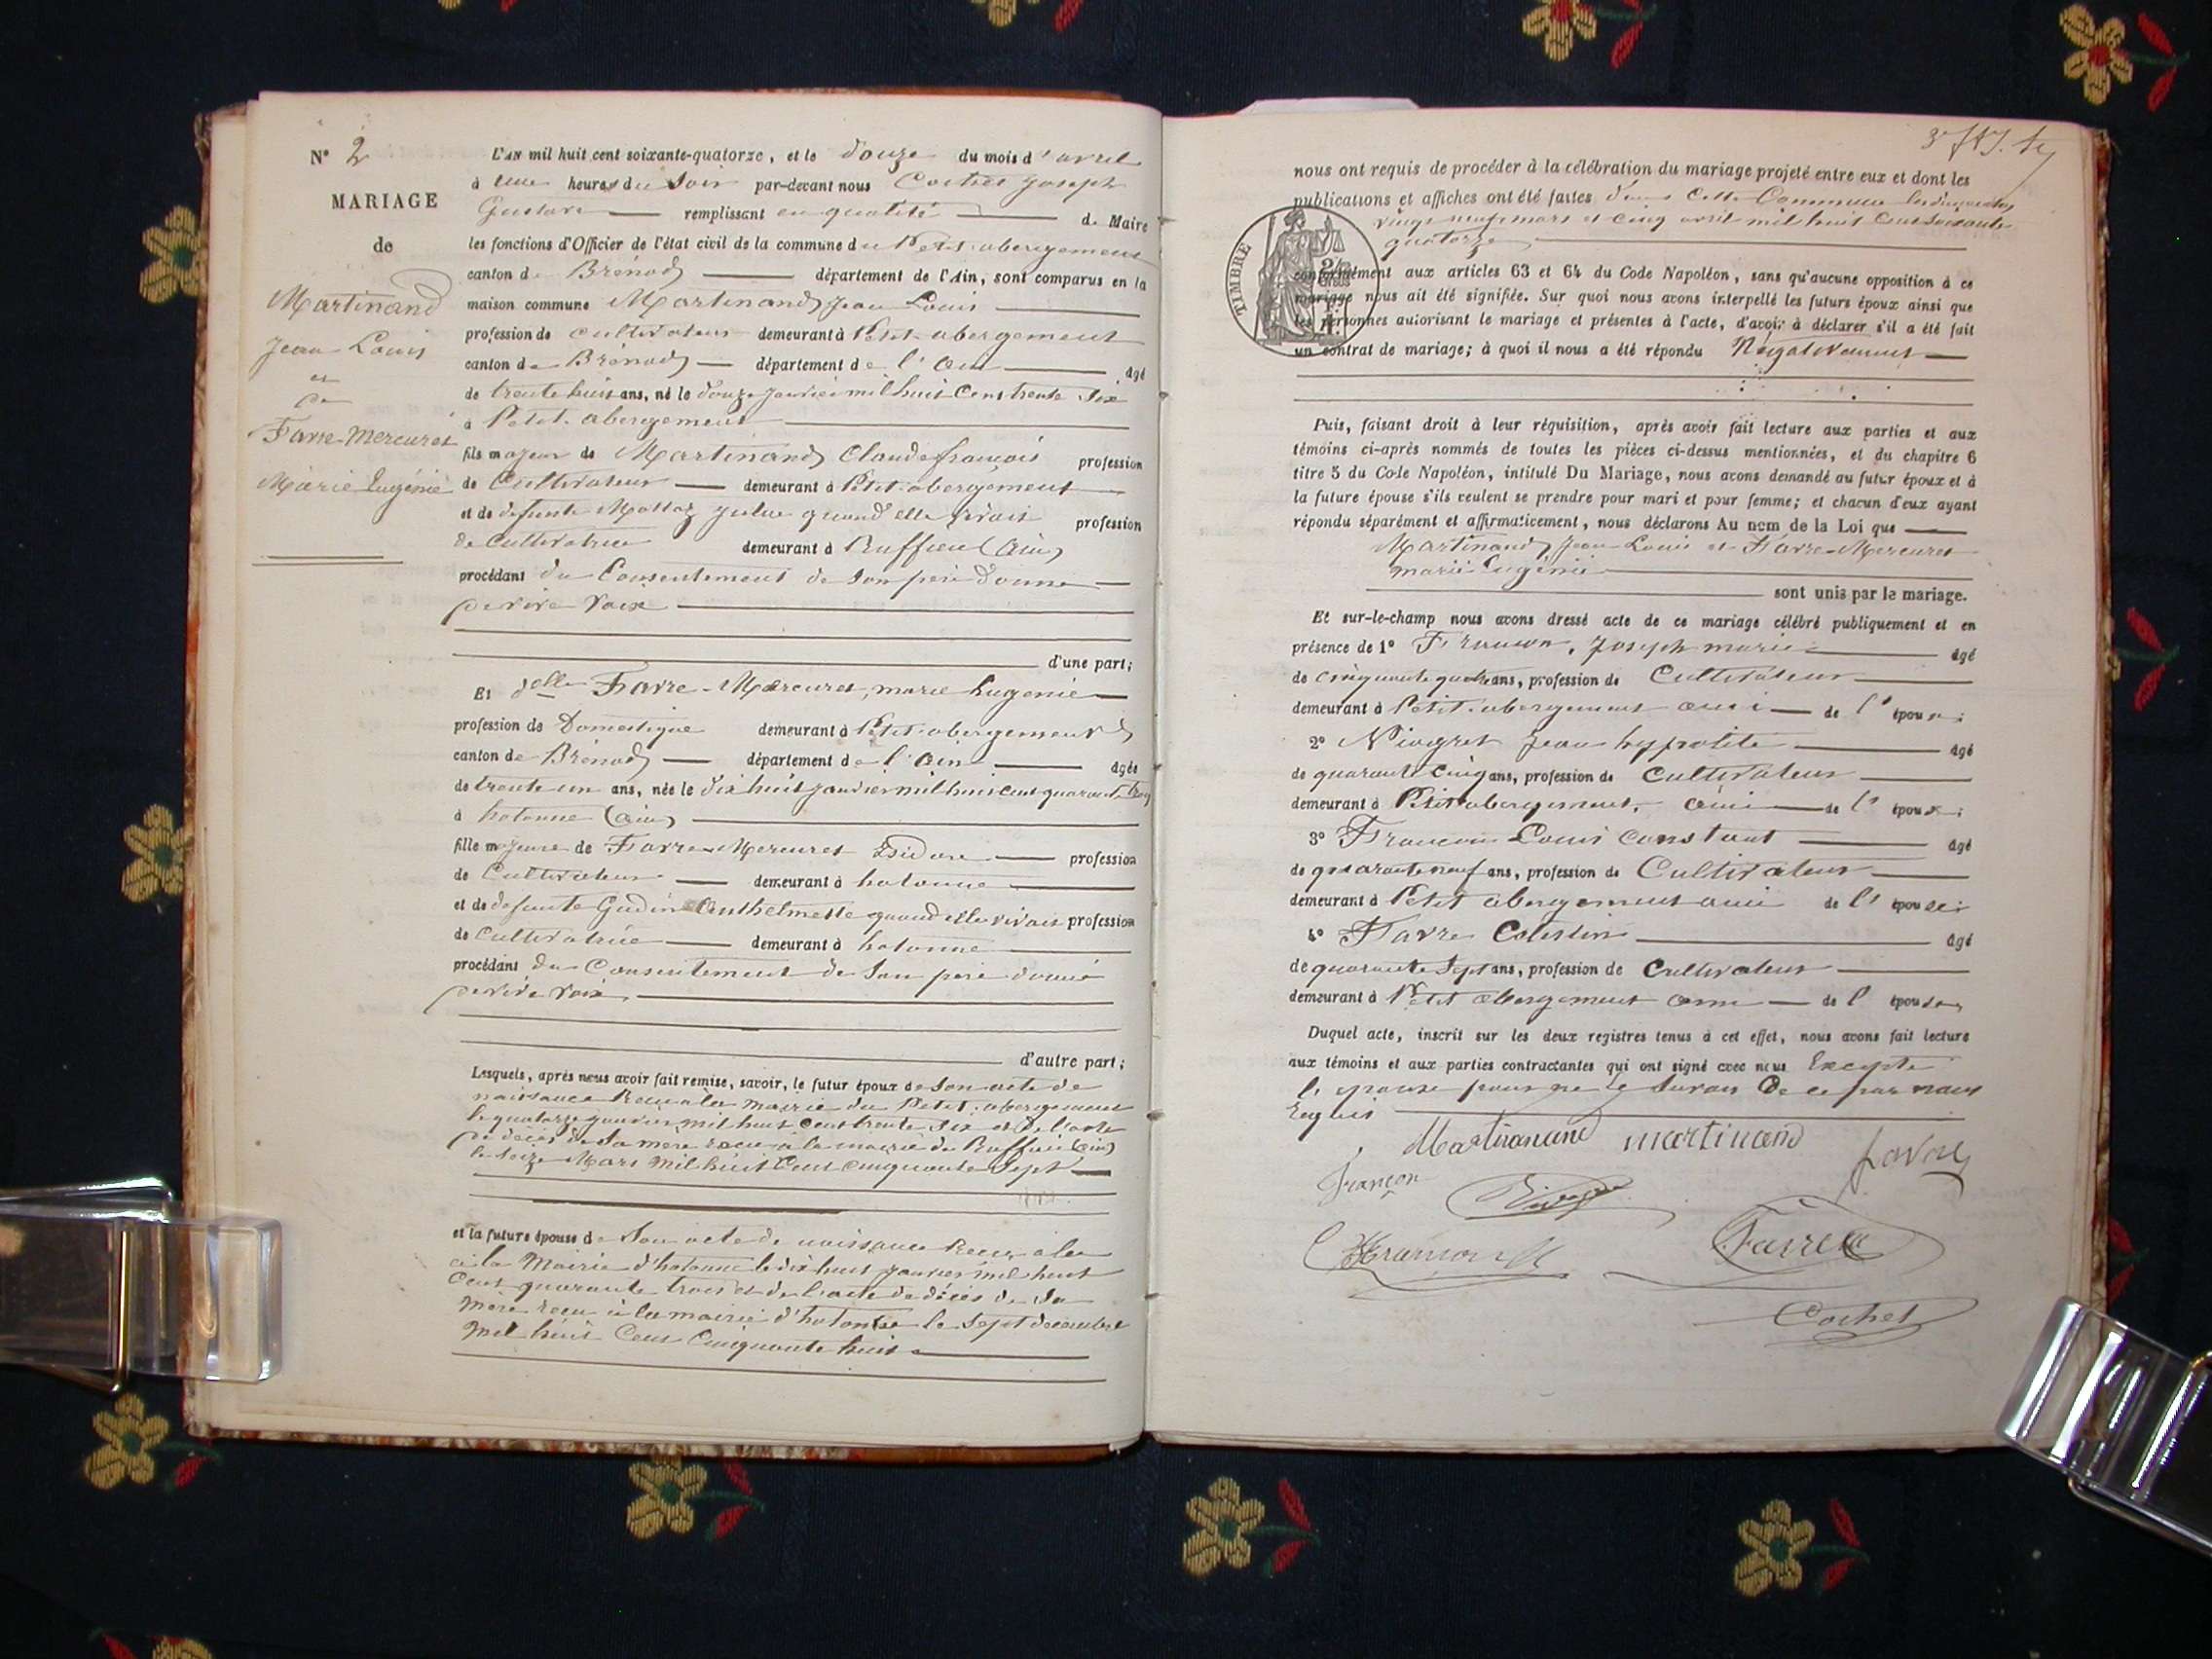 N° 2
MARIAGE
de
Martinand
Jean Louis
et
de
Favre-Mercuret
Marie Eugénie
L'AN mil huit cent soixante-quatorze, et le douze du mois d'avril
à une heure du soir par-devant nous Cochet Joseph
Gustave remplissant en qualité de Maire
les fonctions d'Officier de l'état civil de la commune du Petit-abergement
canton de Brénod département de l'Ain, sont comparus en la
maison commune Martinand Jean Louis
profession de cultivateur demeurant à Petit-abergement
canton de Brénod département de l'Ain âgé
de trente huit ans, né le douze janvier mil huit cent trente six
à Petit-abergement
fils majeur de Martinand Claude françois profession
de Cultivateur demeurant à Petit-abergement
et de défunte Mottaz julie quand elle vivait profession
de Cultivatrice demeurant à Ruffieu (Ain)
procédant du Consentement de son père donné
de vive voix
d'une part;
Et delle Favre-Mercuret, marie Eugénie
profession de Domestique demeurant à Petit-abergement
canton de Brénod département de l'Ain âgée
de trente un ans, née le dix huit janvier mil huit cent quarante trois
à hotonne (Ain)
fille majeure de Favre-Mercuret Isidore profession
de Cultivateur demeurant à hotonne
et de défunte Gudin Anthelmette quand elle vivait profession
de Cultivatrice demeurant à hotonne
procédant du Consentement de son père donné
de vive voix
d'autre part;
Lesquels, après nous avoir fait remise, savoir, le futur époux de son acte de
naissance Reçu à la Mairie du Petit-abergement
le quatorze janvier mil huit cent trente six et de l'acte
de décès de sa mère reçu à la mairie de Ruffieu (Ain)
le seize Mars mil huit Cent cinquante Sept
et la future épouse de Son acte de naissance Reçu à la
à la Mairie d'hotonne le dix huit janvier mil huit
Cent quarante trois et de l'acte de décès de sa
mère reçu à la mairie d'hotonne le Sept décembre
mil huit Cent Cinquante huit
nous ont requis de procéder à la célébration du mariage projeté entre eux et dont les
publications et affiches ont été faites dans cette Commune les dimanches
vingt neuf mars et cinq avril mil huit cent soixante
quatorze
TIMBRE
conformément aux articles 63 et 64 du Code Napoléon, sans qu'aucune opposition à ce
mariage nous ait été signifiée. Sur quoi nous avons interpellé les futurs époux ainsi que
les personnes autorisant le mariage et présentes à l'acte, d'avoir à déclarer s'il a été fait
un contrat de mariage; à quoi il nous a été répondu Négativement
Puis, faisant droit à leur réquisition, après avoir fait lecture aux parties et aux
témoins ci-après nommés de toutes les pièces ci-dessus mentionnées, et du chapitre 6
titre 5 du Code Napoléon, intitulé Du Mariage, nous avons demandé au futur époux et à
la future épouse s'ils veulent se prendre pour mari et pour femme; et chacun d'eux ayant
répondu séparément et affirmativement, nous déclarons Au nom de la Loi que
Martinand Jean Louis et Favre-Mercuret
marie Eugénie
sont unis par le mariage.
Et sur-le-champ nous avons dressé acte de ce mariage célébré publiquement et en
présence de 1° Françon, Joseph marie âgé
de cinquante quatre ans, profession de Cultivateur
demeurant à Petit-abergement ami de l'époux;
2° Jean hyppolite âgé
de quarante cinq ans, profession de Cultivateur
demeurant à Petit abergement, ami de l'époux;
3° Françon Louis Constant âgé
de quarante neuf ans, profession de Cultivateur
demeurant à Petit abergement ami de l'épouse;
4° Favre Célestin âgé
de quarante Sept ans, profession de Cultivateur
demeurant à Petit abergement ami de l'épouse
Duquel acte, inscrit sur les deux registres tenus à cet effet, nous avons fait lecture
aux témoins et aux parties contractantes qui ont signé avec nous Excepté
l'épouse pour ne le savoir de ce par nous
Enquis
martinand
françon
Françon
Favre
Cochet